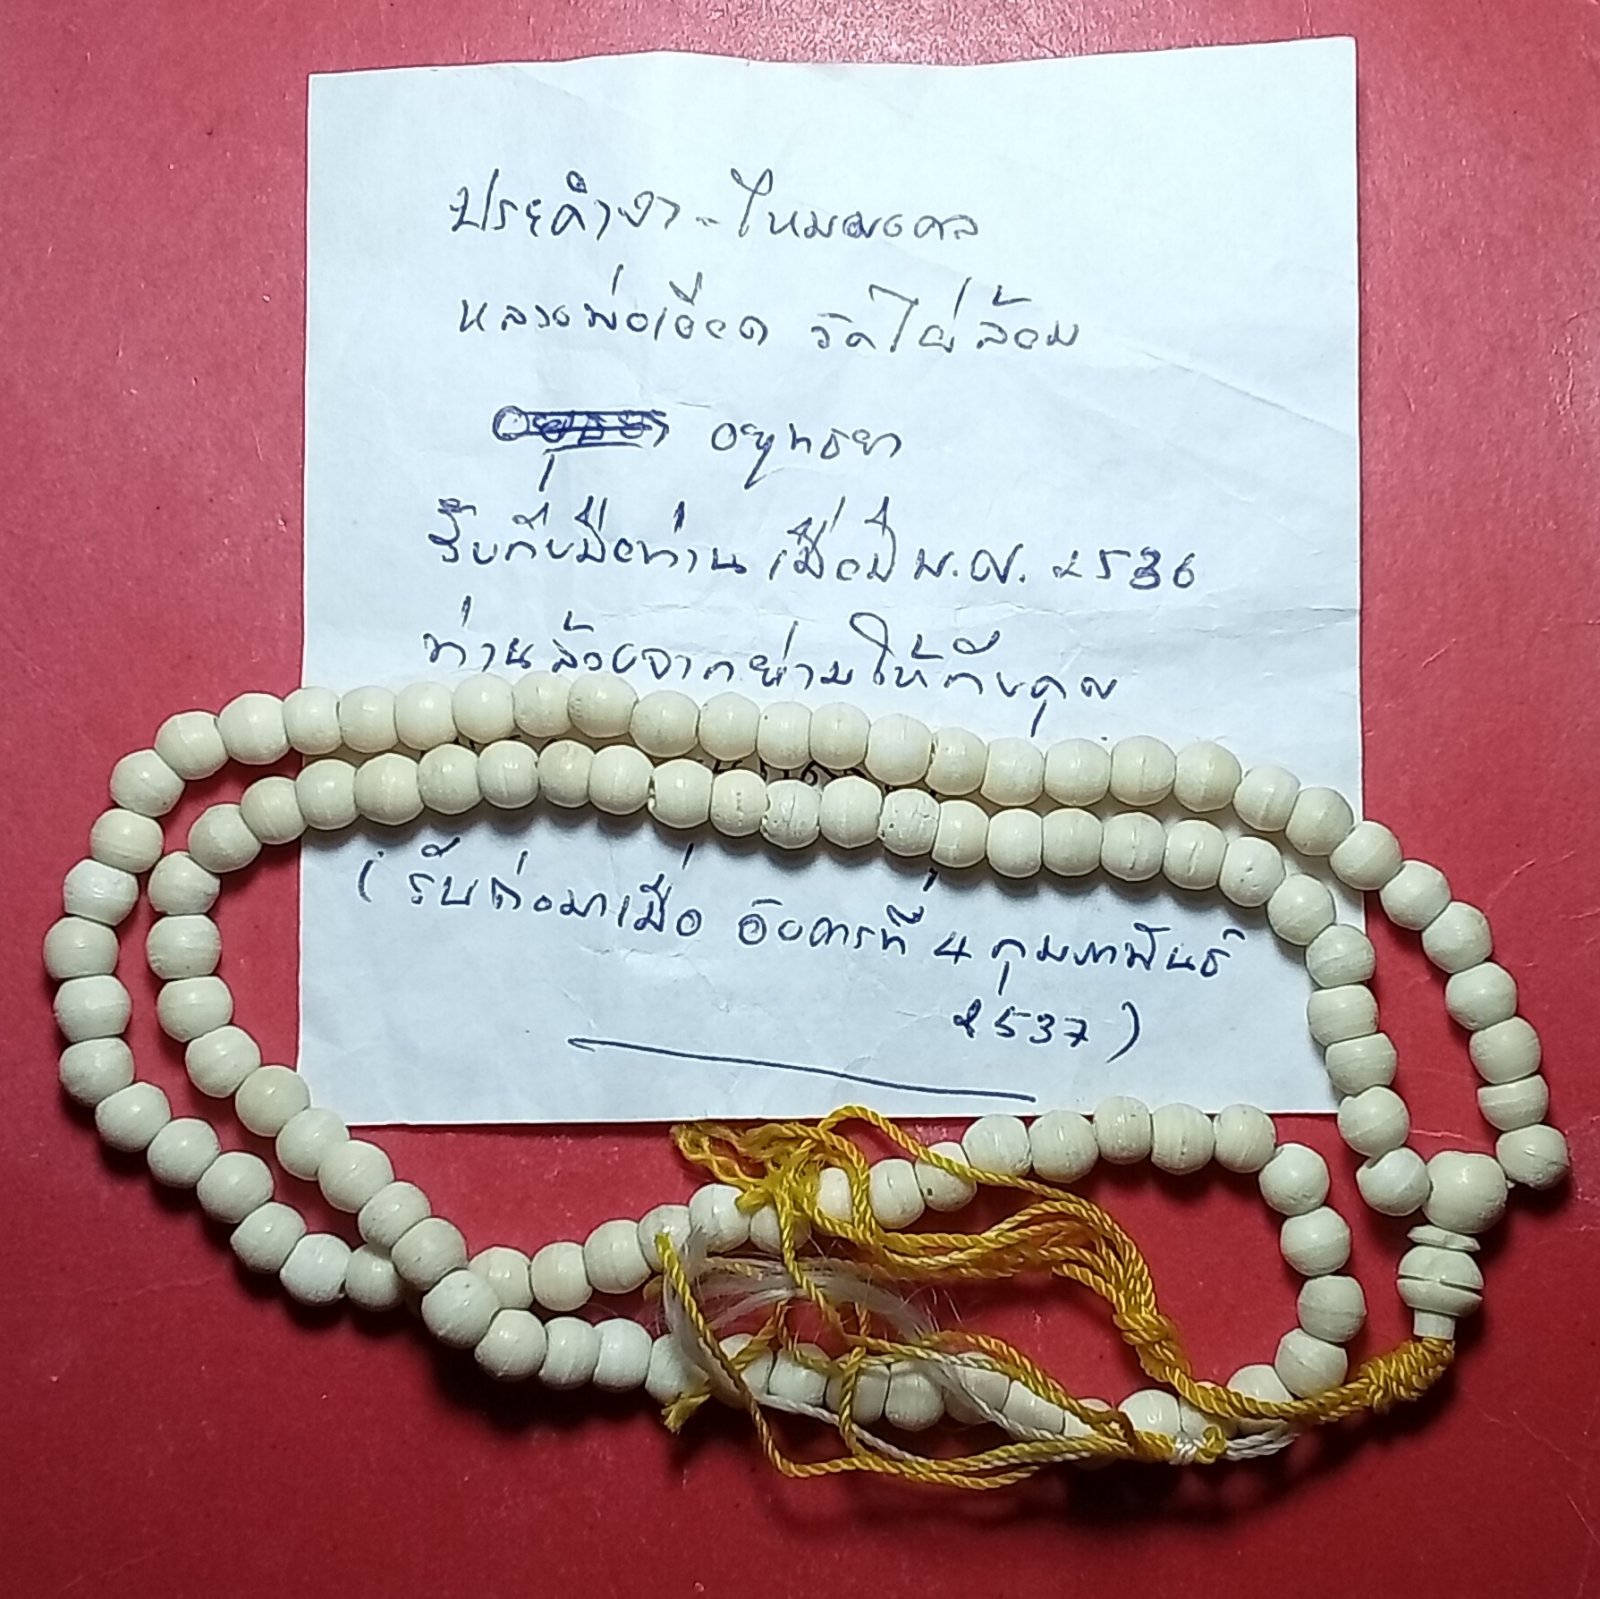 ประคำงา - ไหมมงคล
หลวงพ่อเอียด วัดไผ่ล้อม
อยุธยา อยุทธยา
รับกับมือท่าน เมื่อปี พ.ศ. 2536
ท่านล้วงจากย่ามให้กับคุณ
(รับต่อมาเมื่อ อังคารที่ 4 กุมภาพันธ์
2537)